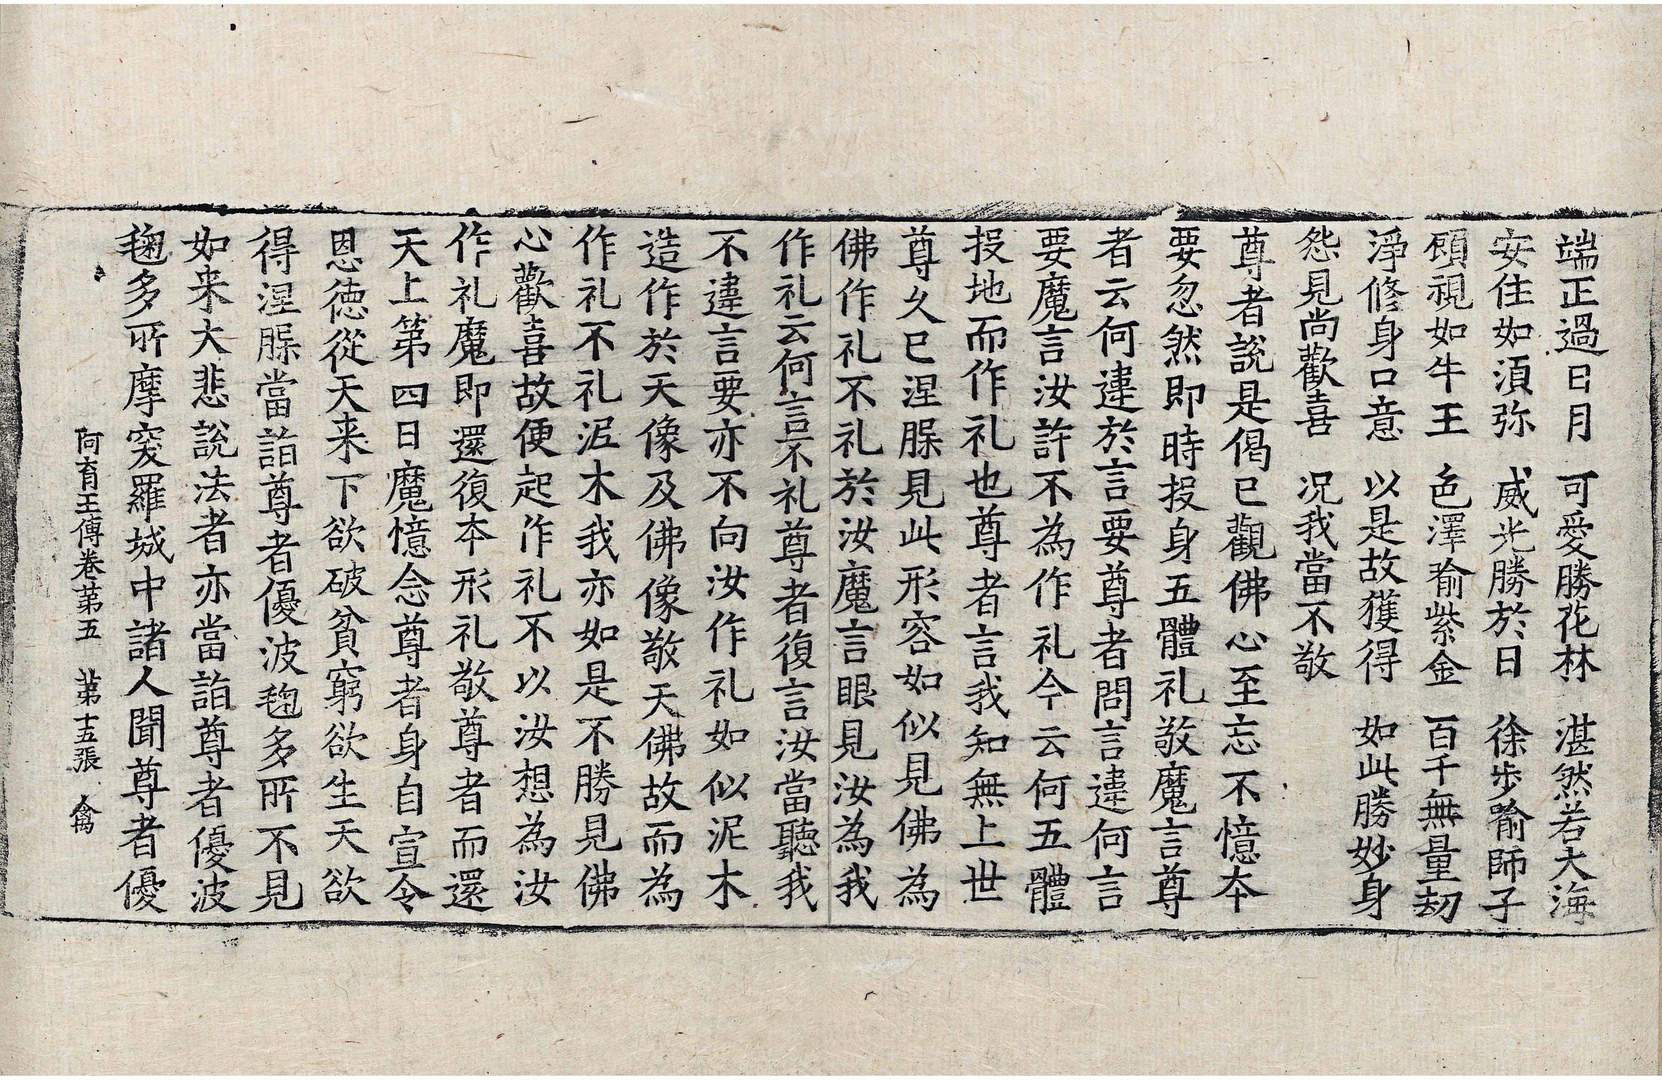 端正過日月 可愛勝花林 湛然若大海
安住如湏弥 威光勝於日 徐步喻師子
頋視如牛王 色澤喻紫金 百千無量劫
淨修身口意 以是故獲得 如此勝妙身
怨見尚歡喜 况我當不敬
尊者說是偈已觀佛心至忘不憶本
要忽然即時投身五體礼敬魔言尊
者云何違於言要尊者問言違何言
要魔言汝許不為作礼今云何五體
投地而作礼也尊者言我知無上世
尊久已涅脲見此形容如似見佛為
佛作礼不礼於汝魔言眼見汝為我
作礼云何言不礼尊者復言汝當聽我
不違言要亦不向汝作礼如似泥木
造作於天像及佛像敬天佛故而為
作礼不礼泥木我亦如是不勝見佛
心歡喜故便起作礼不以汝想為汝
作礼魔即還復本形礼敬尊者而還
天上第四日魔憶念尊者身自宣令
恩德從天来下欲破貧窮欲生天欲
得涅脲當詣尊者優波毱多所不見
如来大悲說法者亦當詣尊者優波
毱多所摩突羅城中諸人聞尊者優
阿育王傳卷苐五 苐十五張 禽